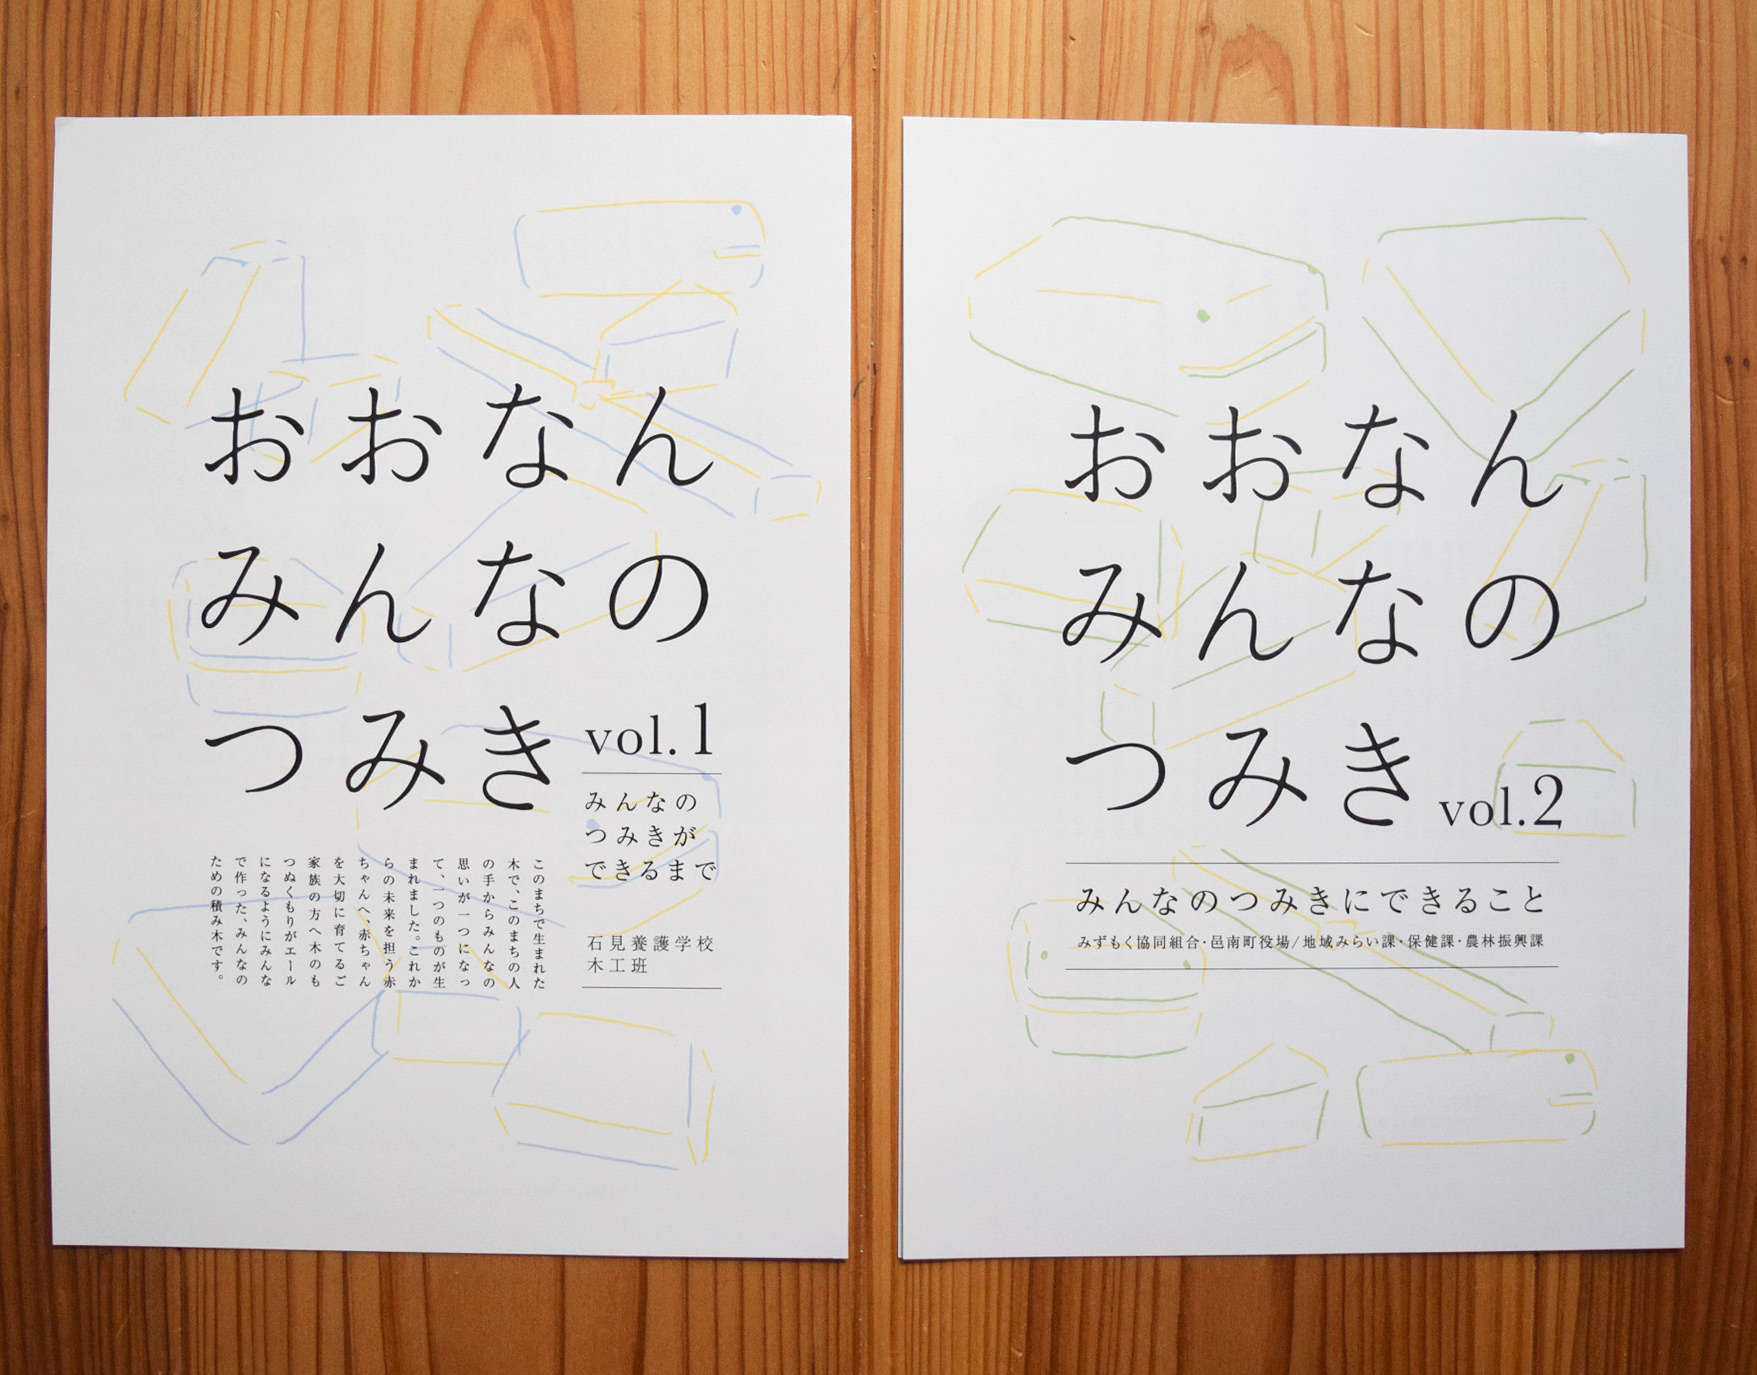 おおなん
みんなの
つみき
vol.1
みんなの
つみきが
できるまで
石見養護学校
木工班
このまちで生まれた
木で、このまちの人
の手からみんなの
思いが一つになっ
て、一つのものが生
まれました。これか
らの未来を担う赤
ちゃんへ、赤ちゃん
を大切に育てるご
家族の方へ木のも
つぬくもりがエール
になるようにみんな
で作った、みんなの
ための積み木です。
おおなん
みんなの
つみき
vol.2
みんなのつみきにできること
みずもく協同組合・邑南町役場/地域みらい課・保健課・農林振興課